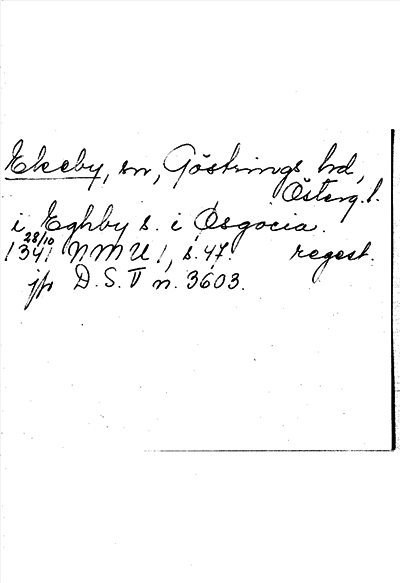 Ekeby, sn, Göstrings hd,
Österg. l.
i Eghby s. i Osgocia.
1341 28/10 NMU 1, s. 47. regest.
jfr D.S. V n. 3603.